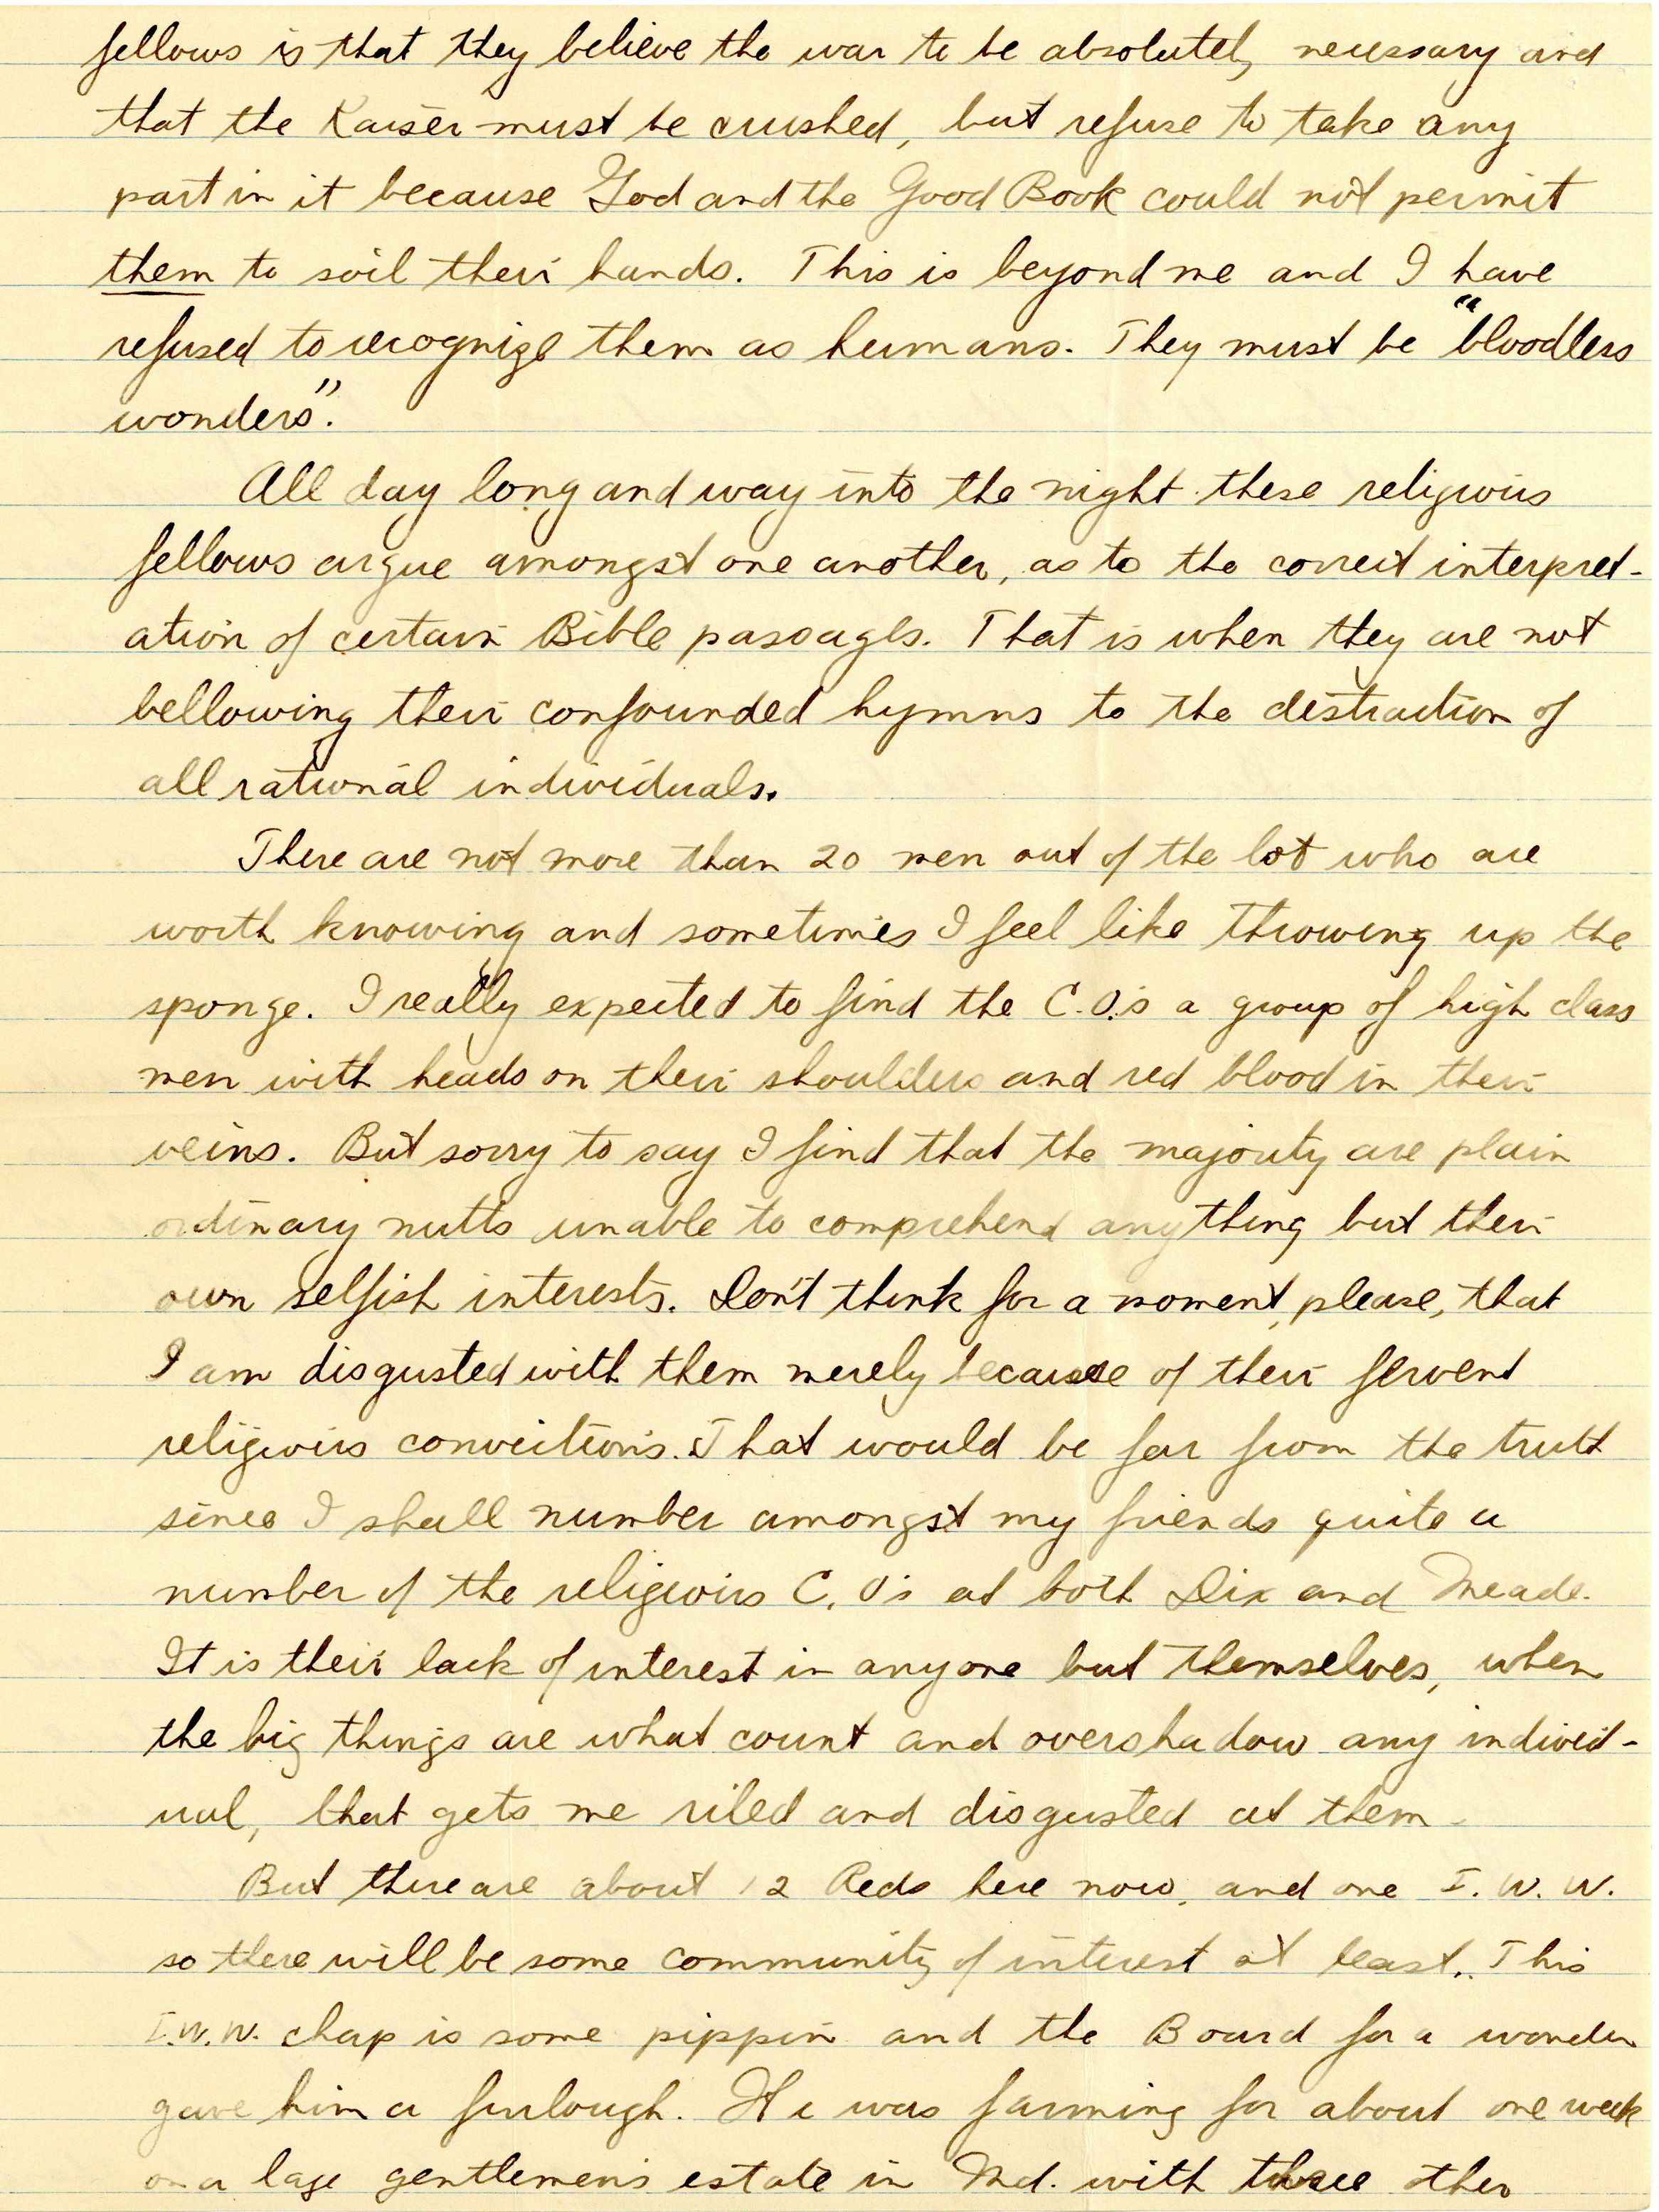 fellows is that they believe the war to be absolutely necessary and
that the Kaiser must be crushed, but refuse to take any
part in it because God and the Good Book could not permit
them to soil their hands. This is beyond me and I have
refused to recognize them as humans. They must be "bloodless
wonders".
All day long and way into the night these religious
fellows argue amongst one another, as to the correct interpret-
ation of certain Bible passages. That is when they are not
bellowing their confounded hymns to the distraction of
all rational individuals.
There are not more than 20 men out of the lot who are
worth knowing and sometimes I feel like throwing up the
sponge. I really expected to find the C.O.'s a group of high class
men with heads on their shoulders and red blood in their
veins. But sorry to say I find that the majority are plain
ordinary nutts unable to comprehend anything but their
own selfish interests. Don't think for a moment, please, that
I am disgusted with them merely because of their fervent
religious convictions. That would be far from the truth
since I shall number amongst my friends quite a
number of the religious C.O's at both Dix and Meade.
It is their lack of interest in anyone but themselves, when
the big things are what count and overshadow any individ-
ual, that gets me riled and disgusted at them.
But there are about 12 Reds here now, and one I.W.W.
so there will be some community of interest at least. This
I.W.W. chap is some pippin and the Board for a wonder
gave him a furlough. He was farming for about one week
on a lage gentlemen's estate in Md. with three other